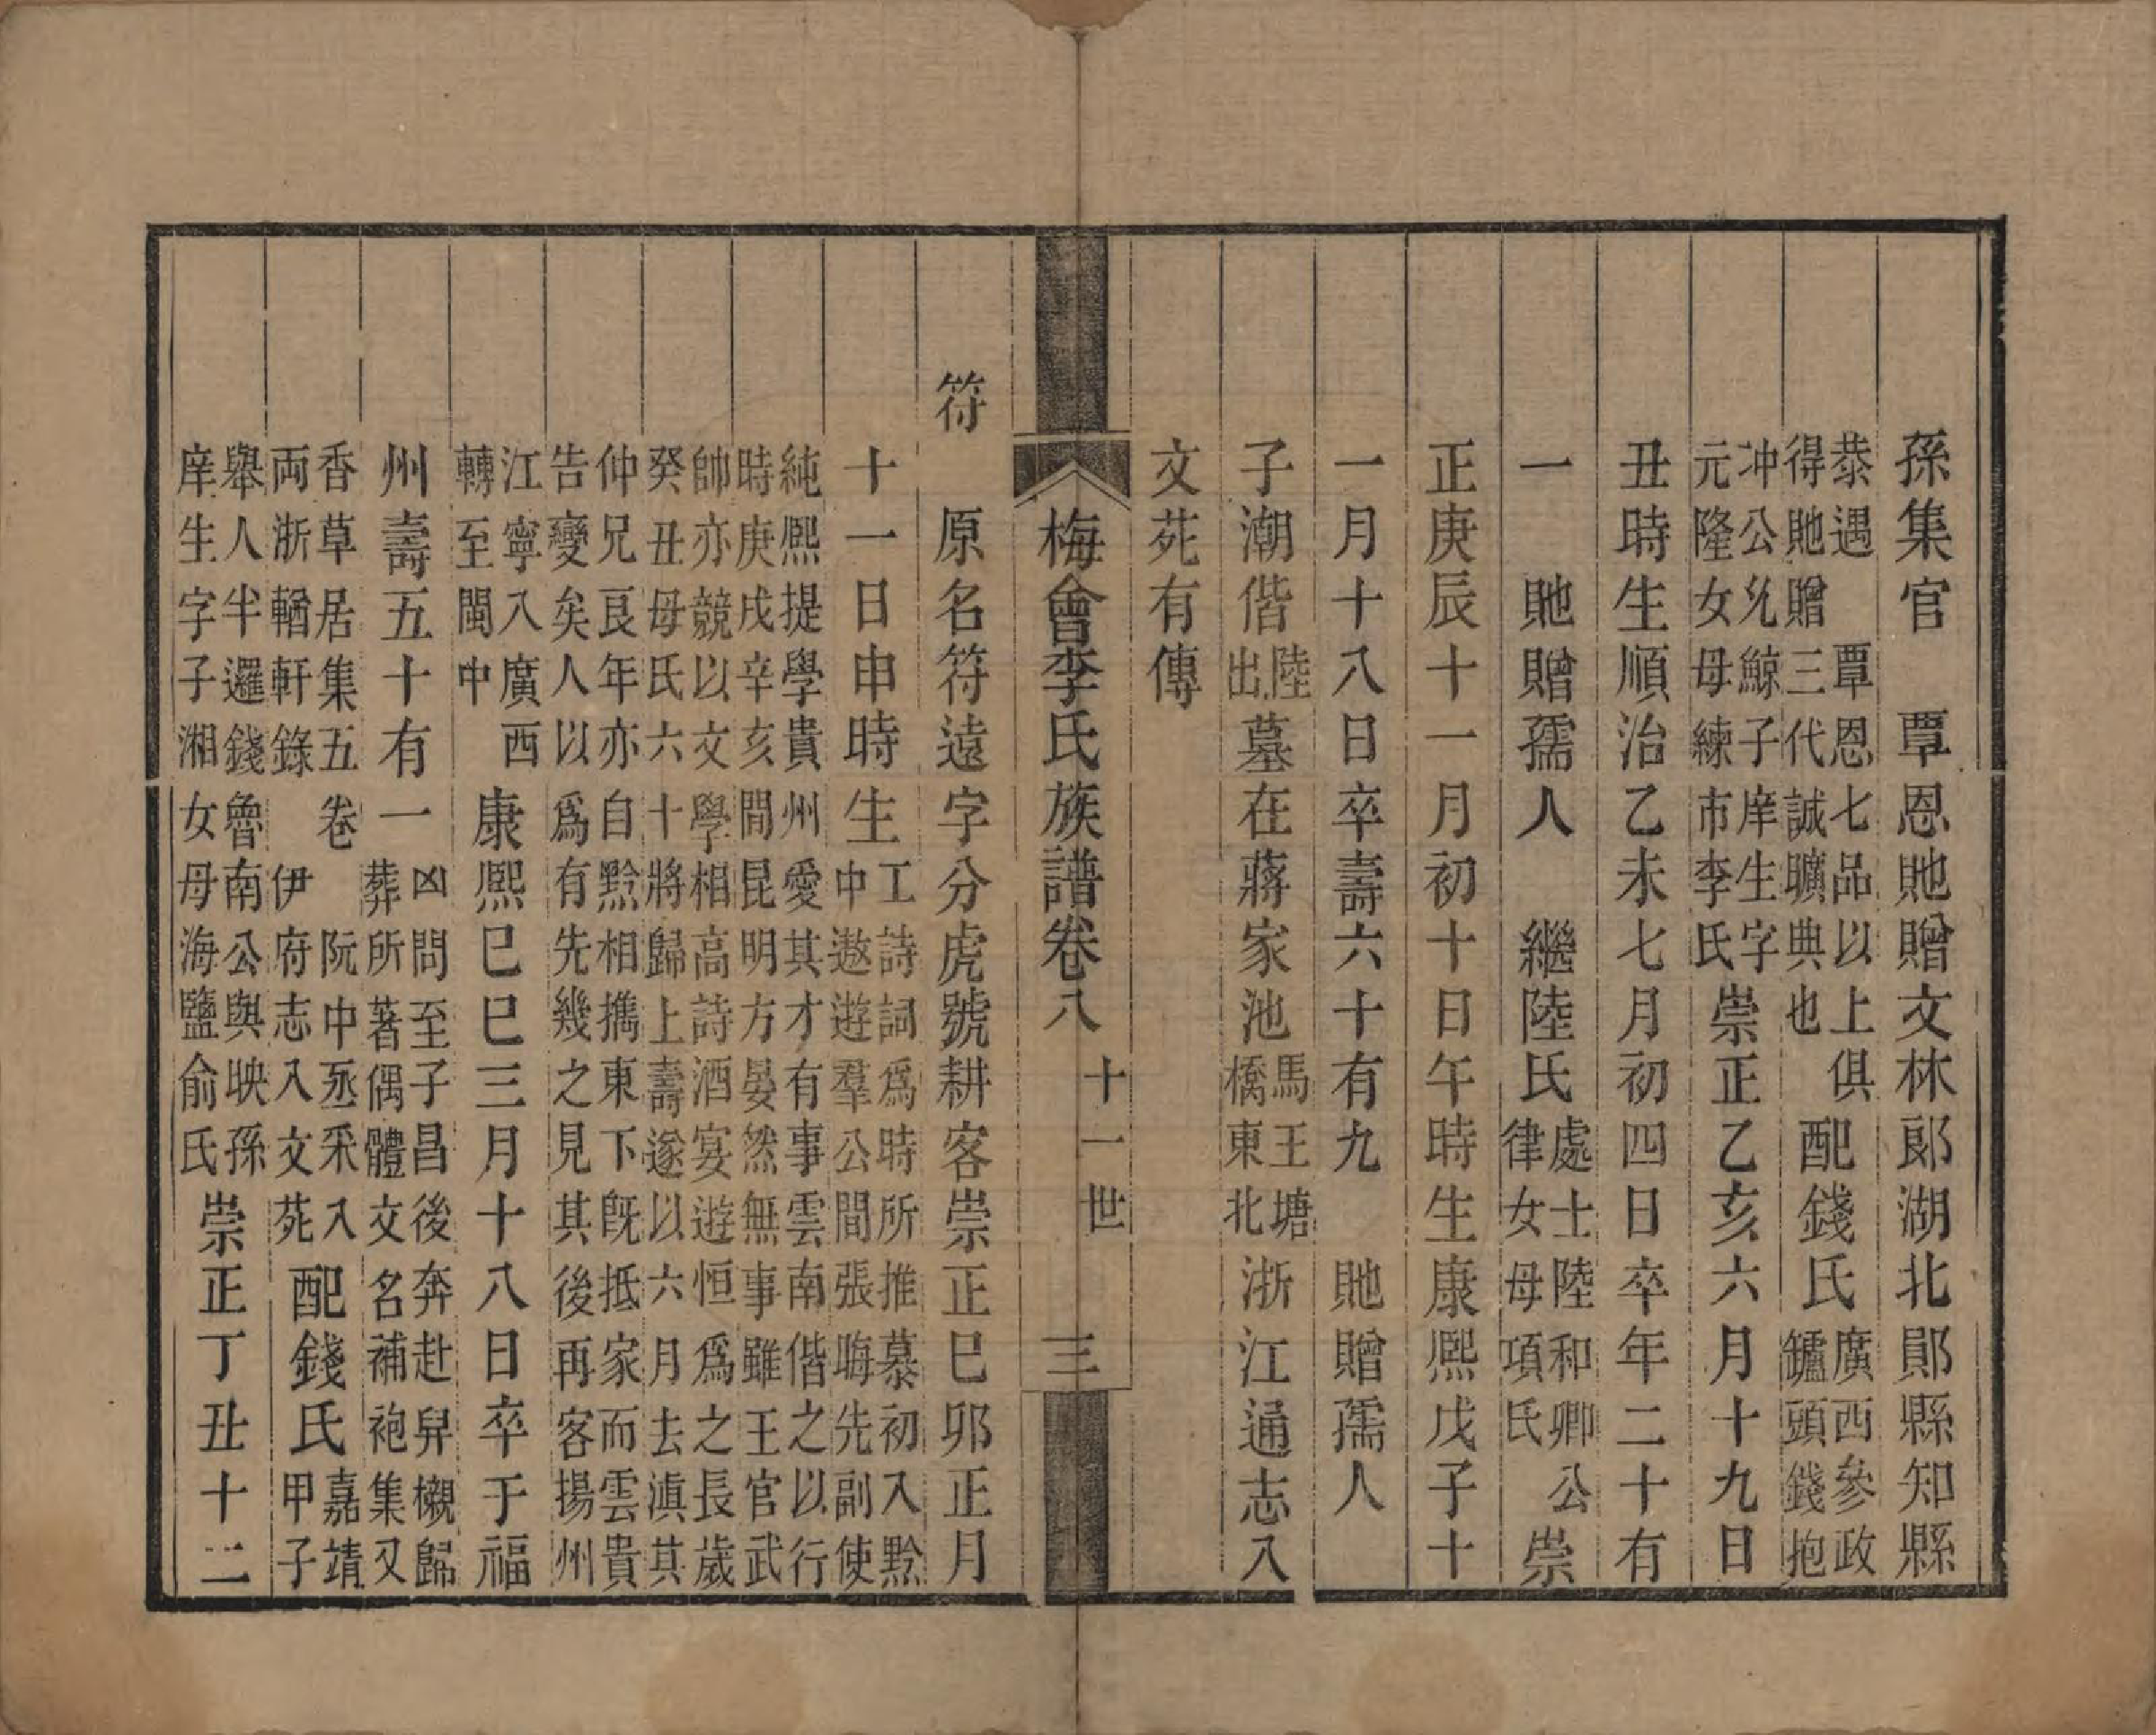 孫集官　覃恩貤贈文林郞湖北鄖縣知縣
恭遇　覃恩七品以上俱
得貤贈三代誠曠典也
配錢氏
廣西參政
鑪頭錢抱
冲公允鯨子庠生字
元隆女母練市李氏
崇正乙亥六月十九日
丑時生順治乙未七月初四日卒年二十有
一　貤贈孺人　繼陸氏
處士陸和卿公
律女母項氏
崇
正庚辰十一月初十日午時生康熙戊子十
一月十八日卒壽六十有九　貤贈孺人
子潮偕
陸
出
墓在蔣家池
馬王塘
橋東北
浙江通志入
文苑有傳
梅會李氏族譜卷八　十一世　三
符　原名符遠字分虎號耕客崇正己卯正月
十一日申時生
工詩詞爲時所推慕初入黔
中遨遊羣公間張晦先副使
純熙提學貴州愛其才有事雲南偕之以行
時庚戌辛亥間昆明方晏然無事雖王官武
帥亦競以文學相高詩酒宴遊恒爲之長歲
癸丑母氏六十將歸上壽遂以六月去滇其
仲兄良年亦自黔相攜東下旣抵家而雲貴
告變矣人以爲有先幾之見其後再客揚州
江寧入廣西
轉至閩中
康熙己巳三月十八日卒于福
州壽五十有一
凶問至子昌後奔赴舁櫬歸
葬所著偶體文名補袍集又
香草居集五卷　阮中丞采入
兩浙輶軒錄　伊府志入文苑
配錢氏
嘉靖
甲子
舉人半邏錢魯南公與映孫
庠生字子湘女母海鹽俞氏
崇正丁丑十二